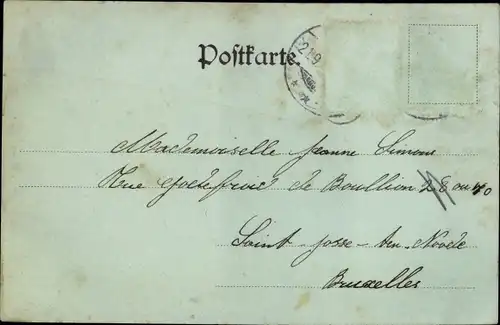 Postkarte.
Mademoiselle Jeanne Simons
Rue Godefroid de Boullion 28 ou 40
Saint-Josse-ten-Noode
Bruxelles